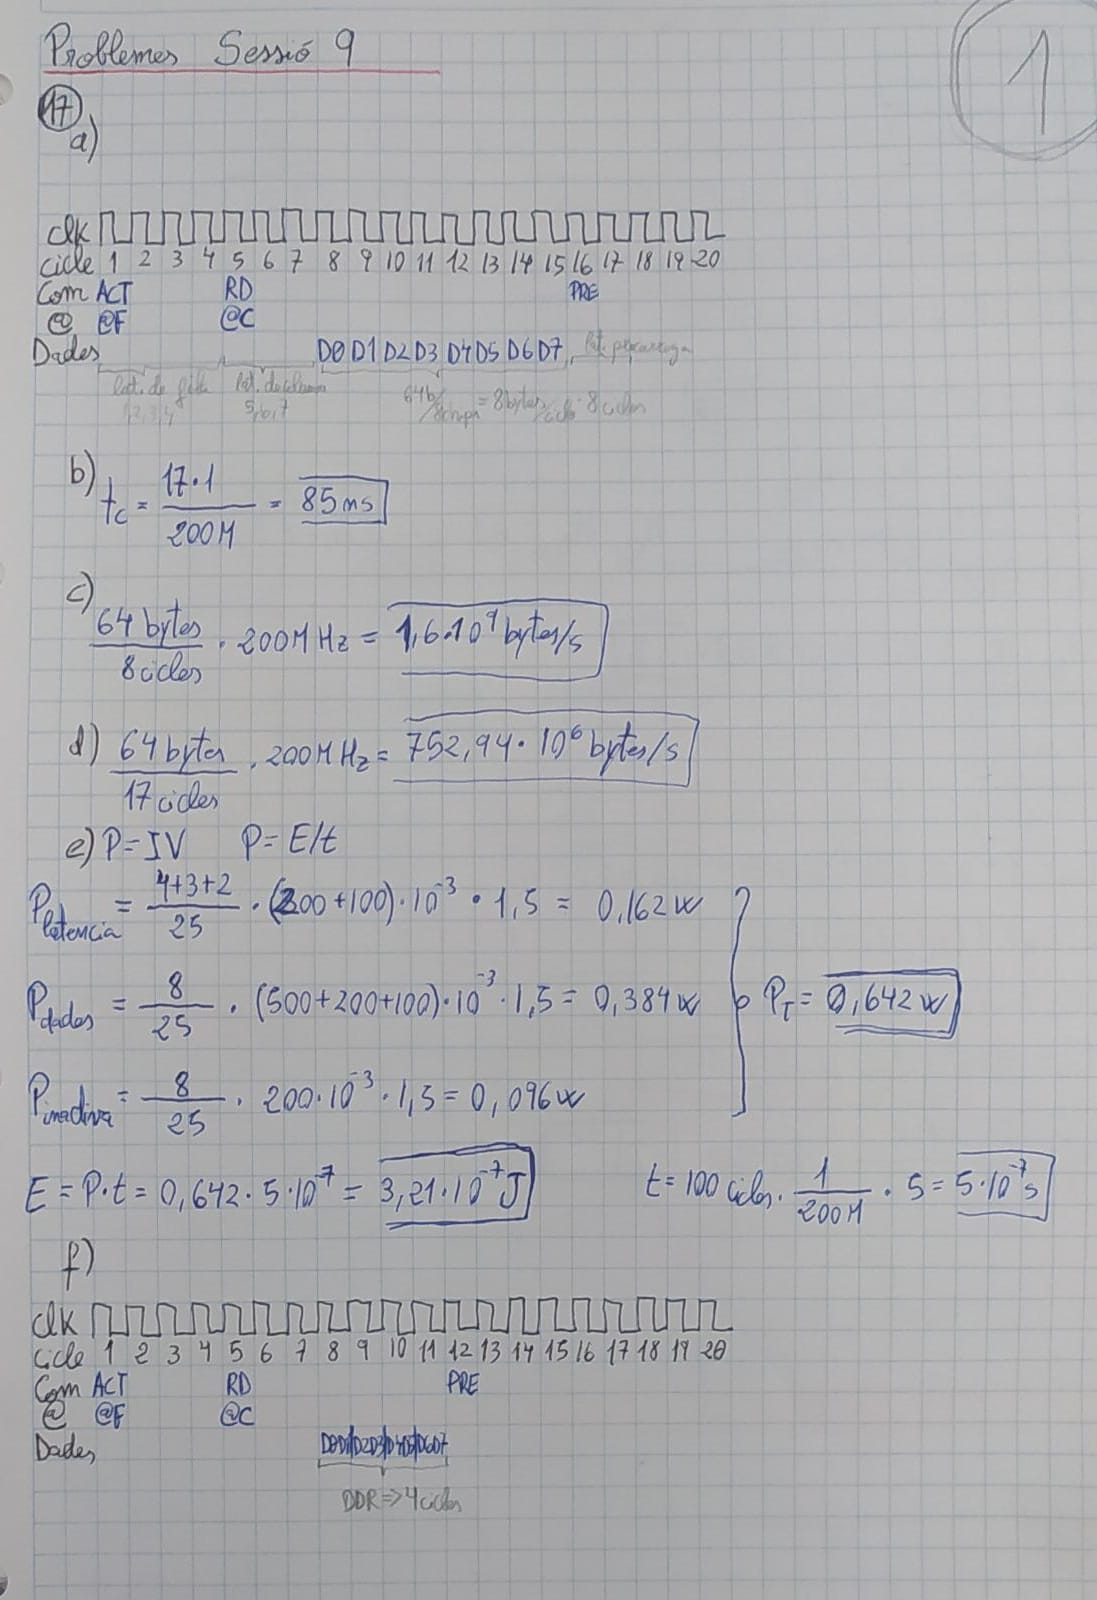 Problemes Sessió 9
1
17
a)
clk
cicle 1 2 3 4 5 6 7 8 9 10 11 12 13 14 15 16 17 18 19 20
Com ACT RD PRE
@ @F @C
Dades D0 D1 D2 D3 D4 D5 D6 D7, lat. precarrega
lat. de fila lat. de columna 64b/8chips = 8bytes/ciclo · 8 cicles
1,2,3,4 5,6,7
b) tc = 17·1/200M = 85ns
c) 64 bytes/8 cicles · 200M Hz = 1,6·10⁹ bytes/s
d) 64 bytes/17 cicles · 200M Hz = 752,94·10⁶ bytes/s
e) P=IV P=E/t
Platencia = 4+3+2/25 · (200+100)·10⁻³ · 1,5 = 0,162w
Pdades = 8/25 · (500+200+100)·10⁻³ · 1,5 = 0,384w PT = 0,642w
Pinactiva = 8/25 · 200·10⁻³ · 1,5 = 0,096w
E = P·t = 0,642·5·10⁻⁷ = 3,21·10⁻⁷J t = 100 cicles · 1/200M · S = 5·10⁻⁷s
f)
clk
cicle 1 2 3 4 5 6 7 8 9 10 11 12 13 14 15 16 17 18 19 20
Com ACT RD PRE
@ @F @C
Dades D0D1|D2D3|D4D5|D6D7
DDR => 4 cicles